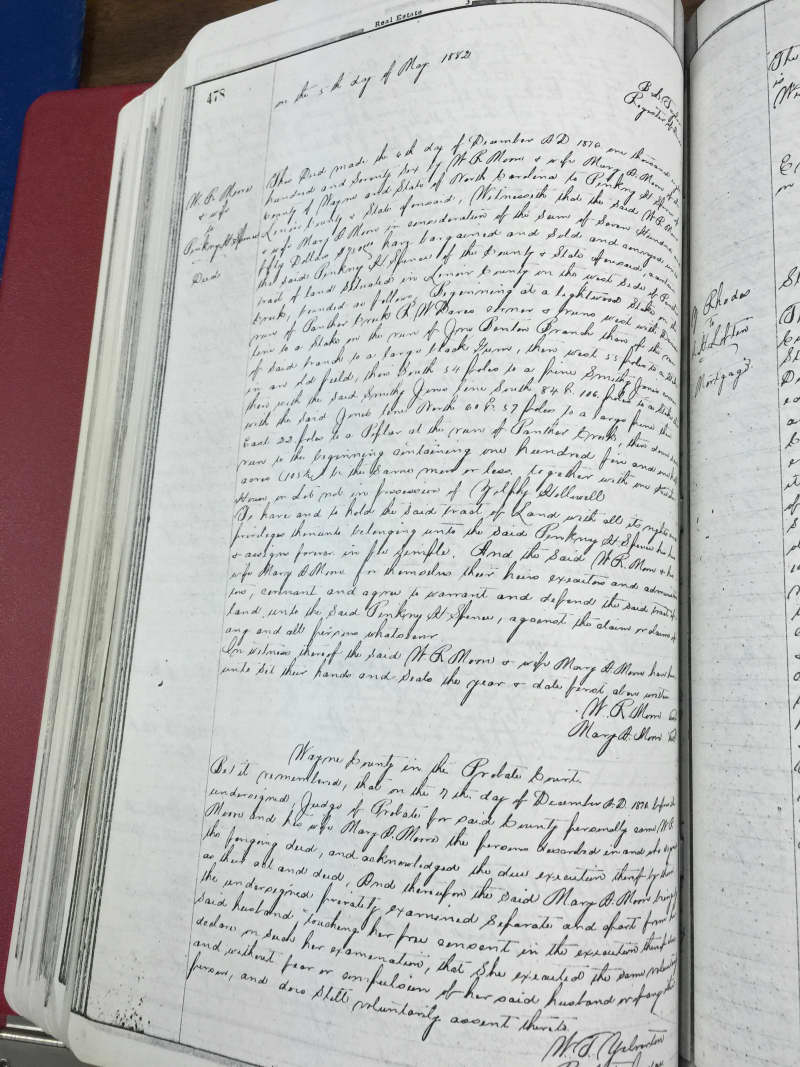 Real Estate
478
on the 5th day of May 1882
Register
W. R. Moore
& wife
to
Pinkney H. Spence
Deed
This Deed made the 6th day of December A D 1876 one thousand
hundred and Seventy Six by W R Moore & wife Mary A. Moore of
County of Wayne and State of North Carolina to Pinkney H Spence of
Lenoir County & State aforesaid, Witnesseth that the said W R Moore
& wife Mary A Moore in consideration of the Sum of Seven Hundred and
fifty Dollars have bargained and Sold and conveyed unto
the said Pinkney H Spence of the County & State aforesaid, a certain
tract of land situated in Lenoir County on the west side of Panther
Creek, bounded as follows, Beginning at a lightwood Stake on the
run of Panther Creek R W Davis corner & runs west with
line to a Stake on the run of Jno Benton Branch then up the run
of said branch to a large black Gum, then west 55 poles to a Stake
in an old field, then South 54 poles to a pine Smithy Jones corner
then with the said Smithy Jones line South 84 E. 106 poles to a Stake
with the said Jones line North 60 E. 37 poles to a large pine then
East 22 poles to a Poplar at the run of Panther Creek, then down
run to the beginning containing one hundred five and one half
acres (105½) be the same more or less. together with one
House or Lot not in possession of Zylphy Hollwell
To have and to hold the said tract of Land with all its rights and
privileges thereunto belonging unto the said Pinkney H Spence his heirs
& assigns forever in fee simple. And the said W. R. Moore & his
wife Mary A Moore for themselves their heirs executors and administra
tors, covenant and agree to warrant and defend the said tract of
land unto the said Pinkney H Spence, against the claim or claims of
any and all persons whatsoever
In witness thereof the said W R Moore & wife Mary A. Moore have here
unto set their hands and Seals the year & date first above written
W. R Moore Seal
Mary A. Moore Seal
Wayne County in the Probate Court.
Be it remembered, that on the 7th day of December A. D. 1876 before the
undersigned, Judge of Probate for said County personally came W. R.
Moore and his wife Mary A. Moore the persons described in and who signed
the forgoing deed, and acknowledged the due execution thereof by them
as their act and deed, And thereupon the said Mary A. Moore being by
the undersigned privately examined Separate and apart from her
said husband touching her free consent in the execution thereof
declare on such her examination, that She executed the same voluntarily
and without fear or compulsion of her said husband or of any other
person, and does still voluntarily assent thereto.
W. T. Yelverton
Probate Judge
Rhodes
to
Loftin
Mortgage